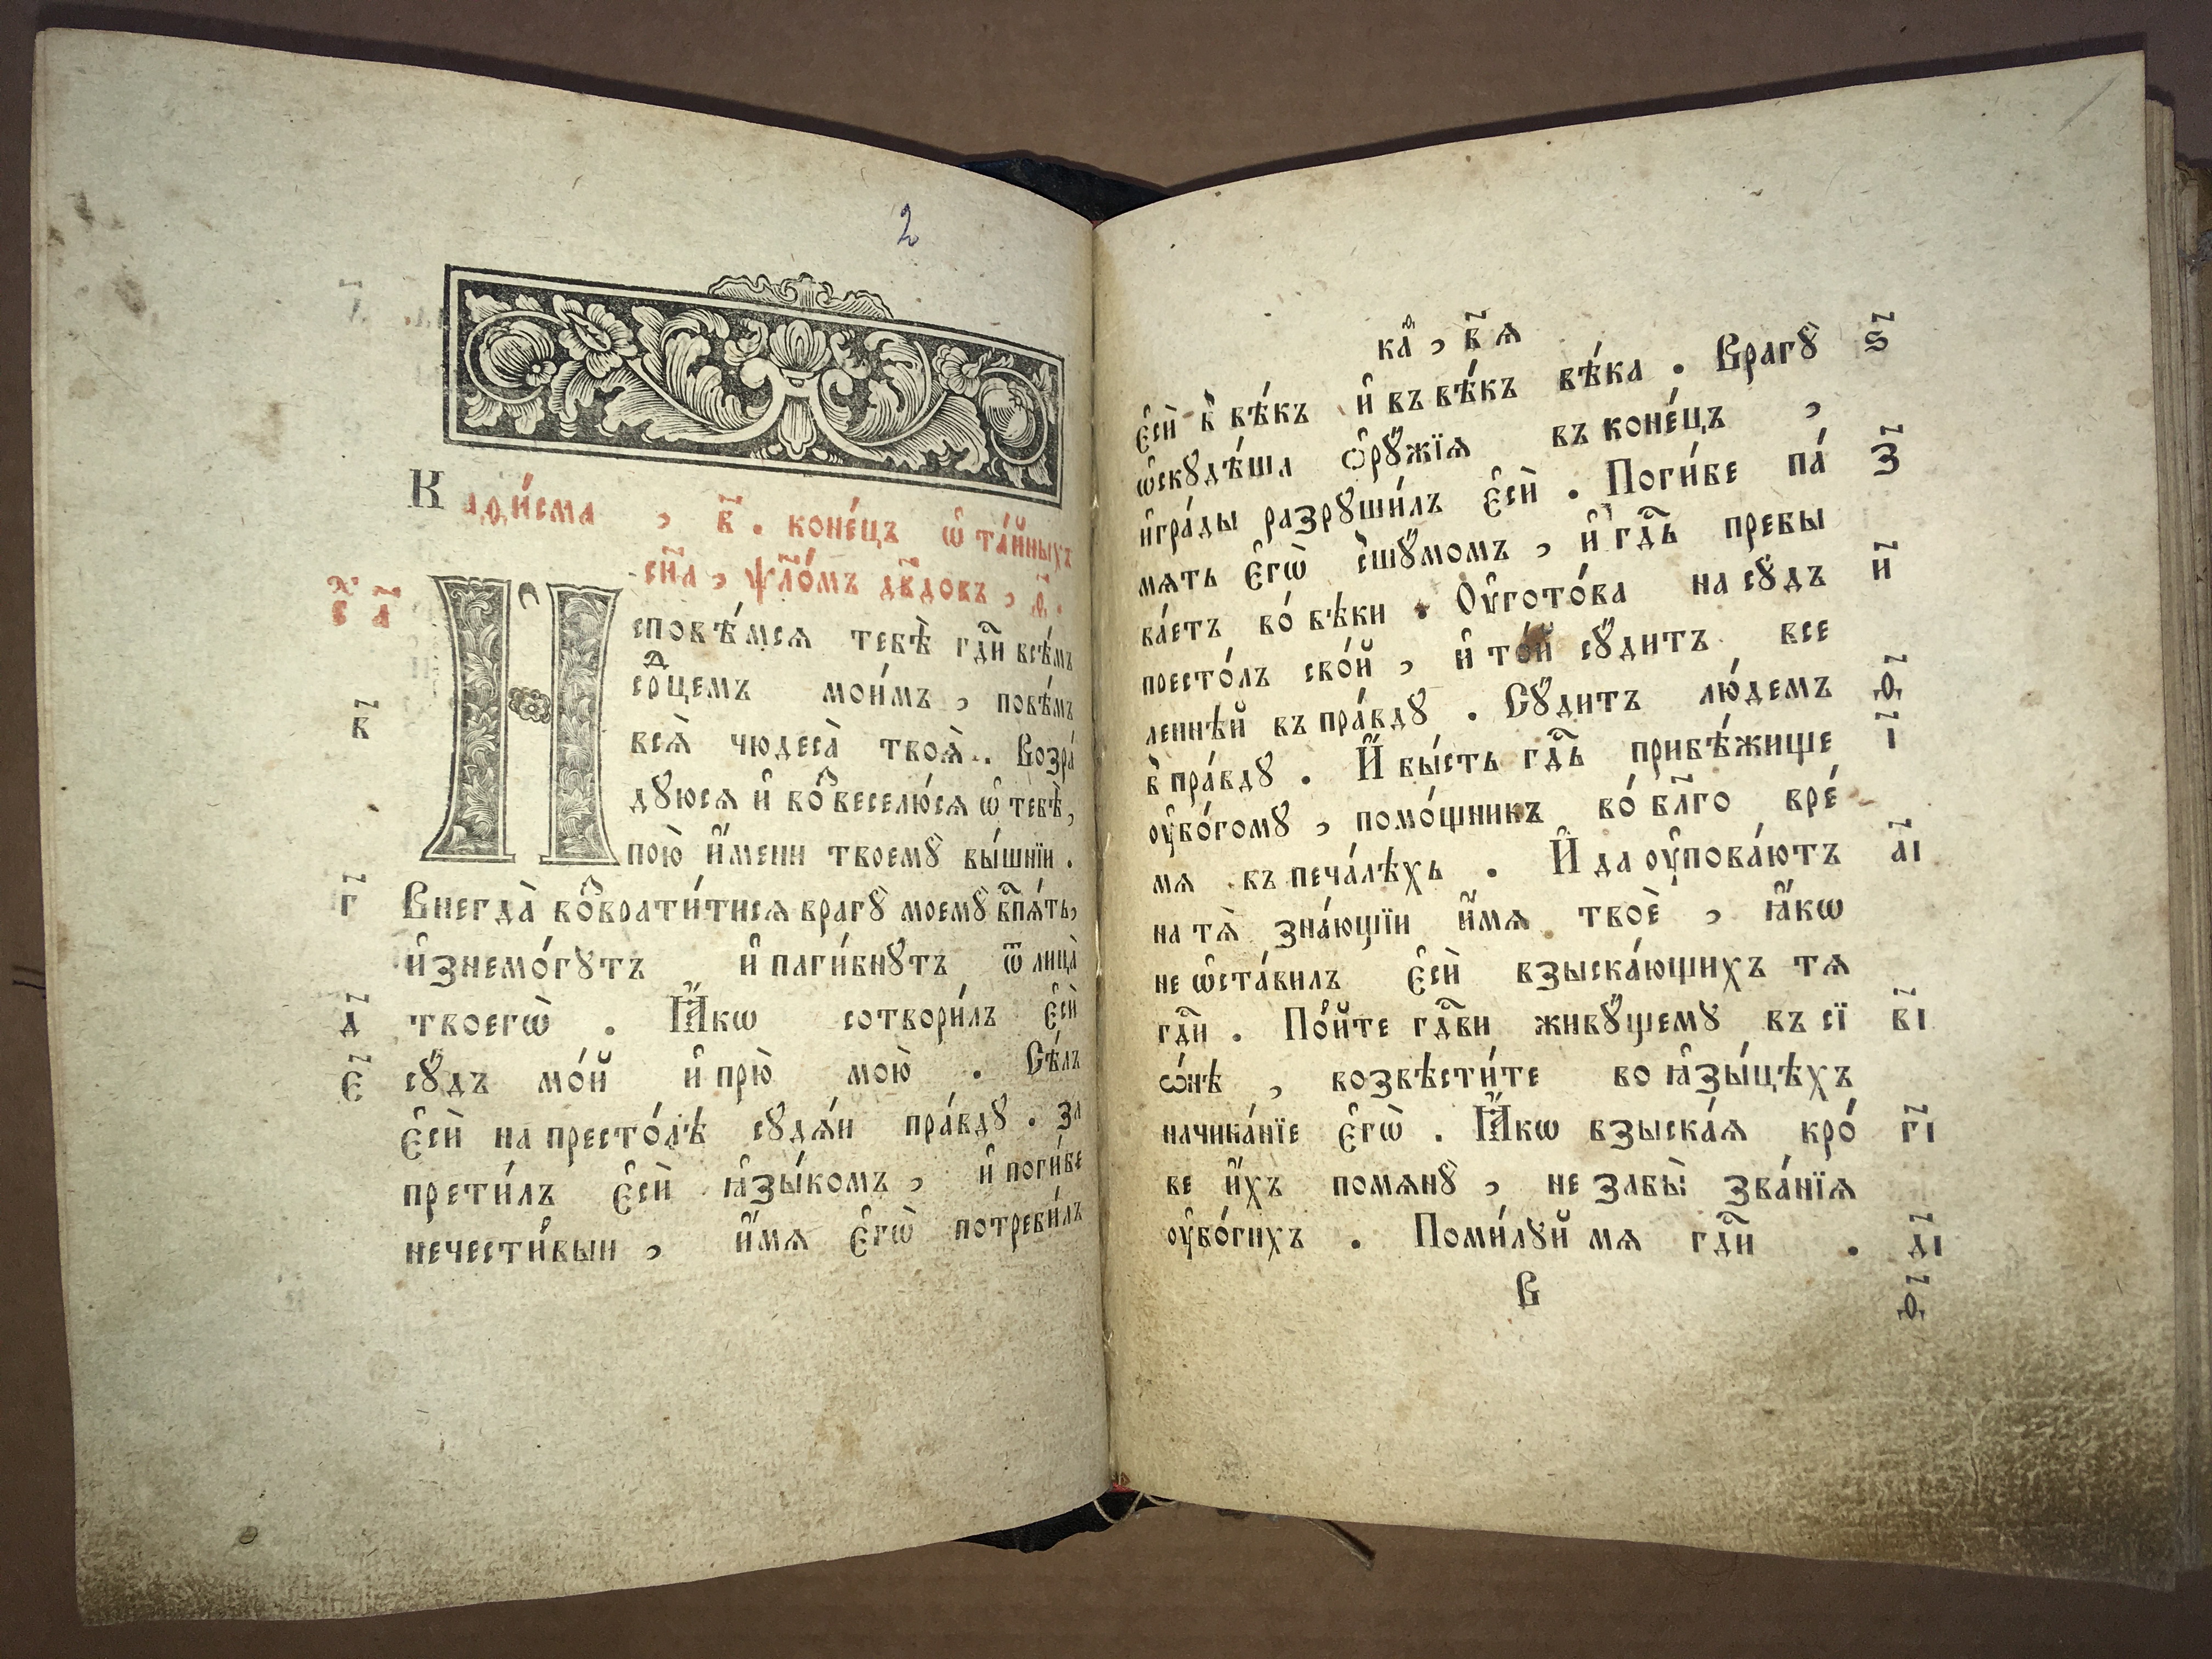 2
Каѳи́сма , в҃ . коне́цъ ѡ҆ та́йныхъ
сн҃а , ѱало́мъ дв҃довъ , ѳ҃ .
с҃ а҃
Исповѣ́мсѧ тебѣ̀ гдⷭ҇и всѣ́мъ
срⷣцемъ мои́мъ , повѣ́мъ
в҃
всѧ̀ чюдеса̀ твоѧ̀ . Возра́
дꙋюсѧ и҆ во҆звеселю́сѧ ѡ҆ тебѣ̀ ,
пою̀ и҆́мени твоемꙋ̀ вы́шнїи .
г҃ Внегда̀ во҆зврати́тисѧ врагꙋ̀ моемꙋ̀ вспѧ́ть ,
и҆знемо́гꙋтъ и҆ паги́бнꙋтъ ѿ лица̀
д҃ твоегѡ̀ . Ꙗ҆́кѡ сотвори́лъ є҆сѝ
є҃ сꙋ́дъ мо́й и҆ прю̀ мою̀ . Сѣ́лъ
є҆сѝ на престо́лѣ сꙋдѧ́и пра́вдꙋ . за
прети́лъ є҆сѝ ꙗ҆зы́комъ , и҆ поги́бе
нечести́выи , и҆́мѧ є҆гѡ̀ потреби́лъ
каѳ , в҃ ѧ
є҆сѝ в҆ вѣ́къ и҆ въ вѣ́къ вѣ́ка . Врагꙋ̀ ѕ҃
ѡ҆скꙋдѣ́ша ѻ҆рꙋ́жїѧ въ коне́цъ ,
и҆гра́ды разрꙋши́лъ є҆сѝ . Поги́бе па́ з҃
мѧть є҆гѡ̀ сшꙋ́момъ , и҆ гдⷭ҇ь пребы
ва́етъ во́ вѣки . Оу҆гото́ва на сꙋ́дъ и҃
престо́лъ сво́й , и҆ то́й сꙋ́дитъ все
ленне́й въ пра́вдꙋ . Сꙋ́дитъ лю́демъ ѳ҃
в҆ пра́вдꙋ . И҆́ бы́сть гдⷭ҇ь прибѣ́жище і҃
оу҆бо́гомꙋ , помо́щникъ во́ бл҃го вре́
мѧ въ печа́лѣхъ . И҆ да оу҆пова́ютъ а҃і
на тѧ̀ зна́ющїи и҆́мѧ твоѐ , ꙗ҆́кѡ
не ѡ҆ста́вилъ є҆сѝ взыска́ющихъ тѧ
гдⷭ҇и . По́йте гдⷭ҇ви живꙋ́щемꙋ въ сї в҃і
ѡ́нѣ , возвѣсти́те во ꙗ҆зы́цѣхъ
начина́нїе є҆гѡ̀ . Ꙗ҆́кѡ взыска́ѧ кро́ г҃і
ве и҆́хъ помѧнꙋ̀ , не забы̀ зва́нїѧ
оу҆бо́гихъ . Поми́лꙋй мѧ гдⷭ҇и . д҃і
В ѳ҃